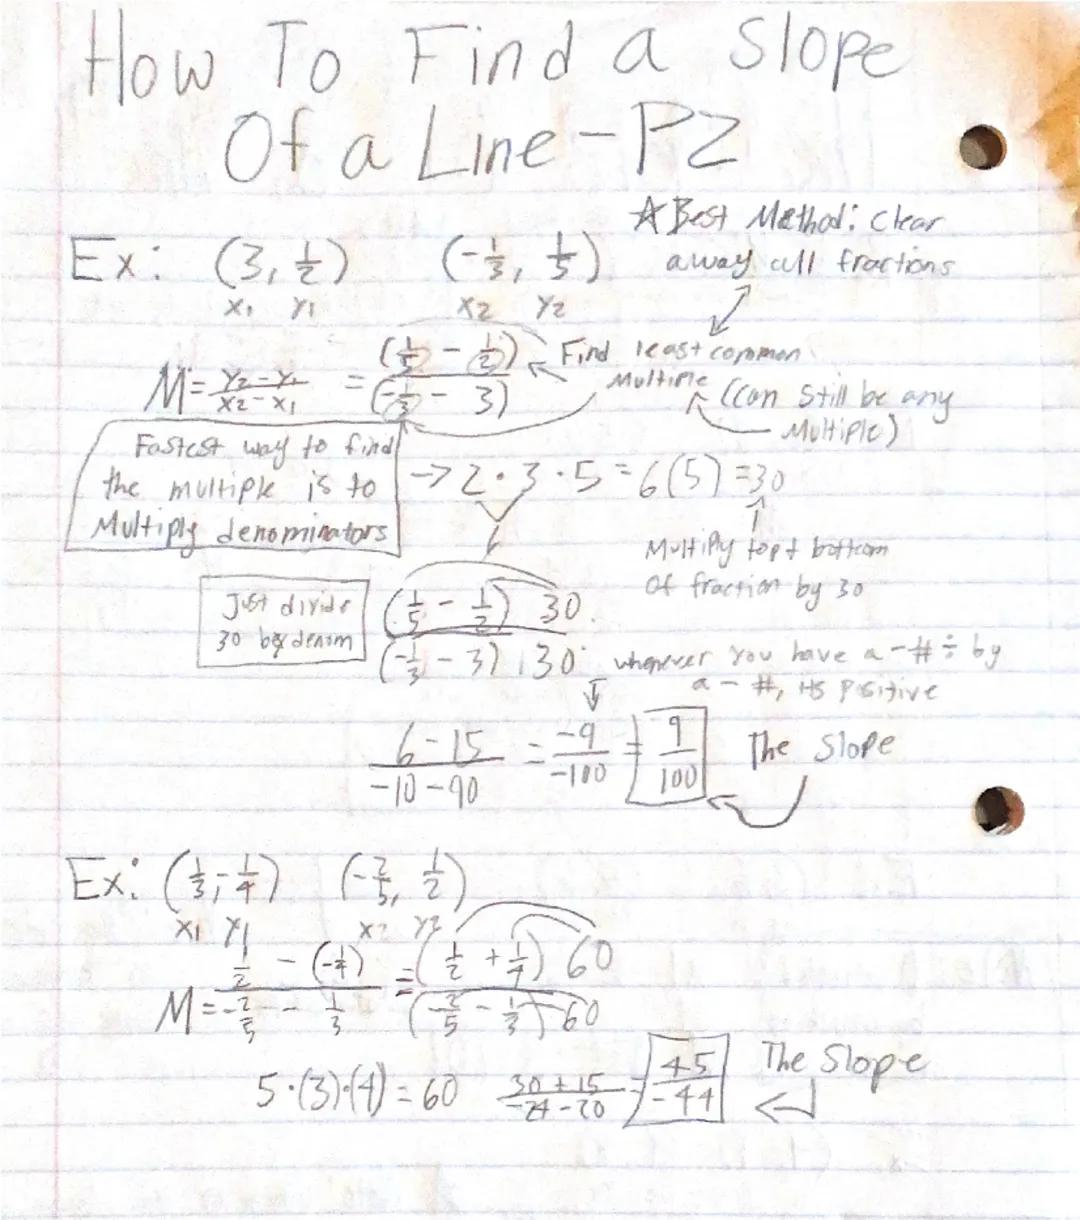 How To Find a Slope
Of a Line - P2
☆ Best Method: Clear
away all fractions
Ex: (3, 1/2) (-1/3, 1/5)
x₁ y₁ x₂ y₂
M = (y₂-y₁)/(x₂-x₁) = (1/5 - 1/2)/(-1/3 - 3)
Find least common
Multiple
(Can Still be any
Multiple)
Fastest way to find
the multiple is to
Multiply denominators
→ 2 · 3 · 5 = 6(5) = 30
6
Multiply top + bottom
of fraction by 30
Just divide
30 by denom
(1/5 - 1/2) 30
(-1/3 - 3) 30
whenever you have a -# ÷ by
a - #, its positive
(6-15)/(-10-90) = -9/-100 = 9/100 The Slope
Ex: (1/3, -1/4) (-2/5, 1/2)
x₁ y₁ x₂ y₂
M = (1/2 - (-1/4))/(-2/5 - 1/3) = (1/2 + 1/4) 60/(-2/5 - 1/3) 60
5·(3)·(4) = 60 (30+15)/(-24-20) = 45/-44 The Slope